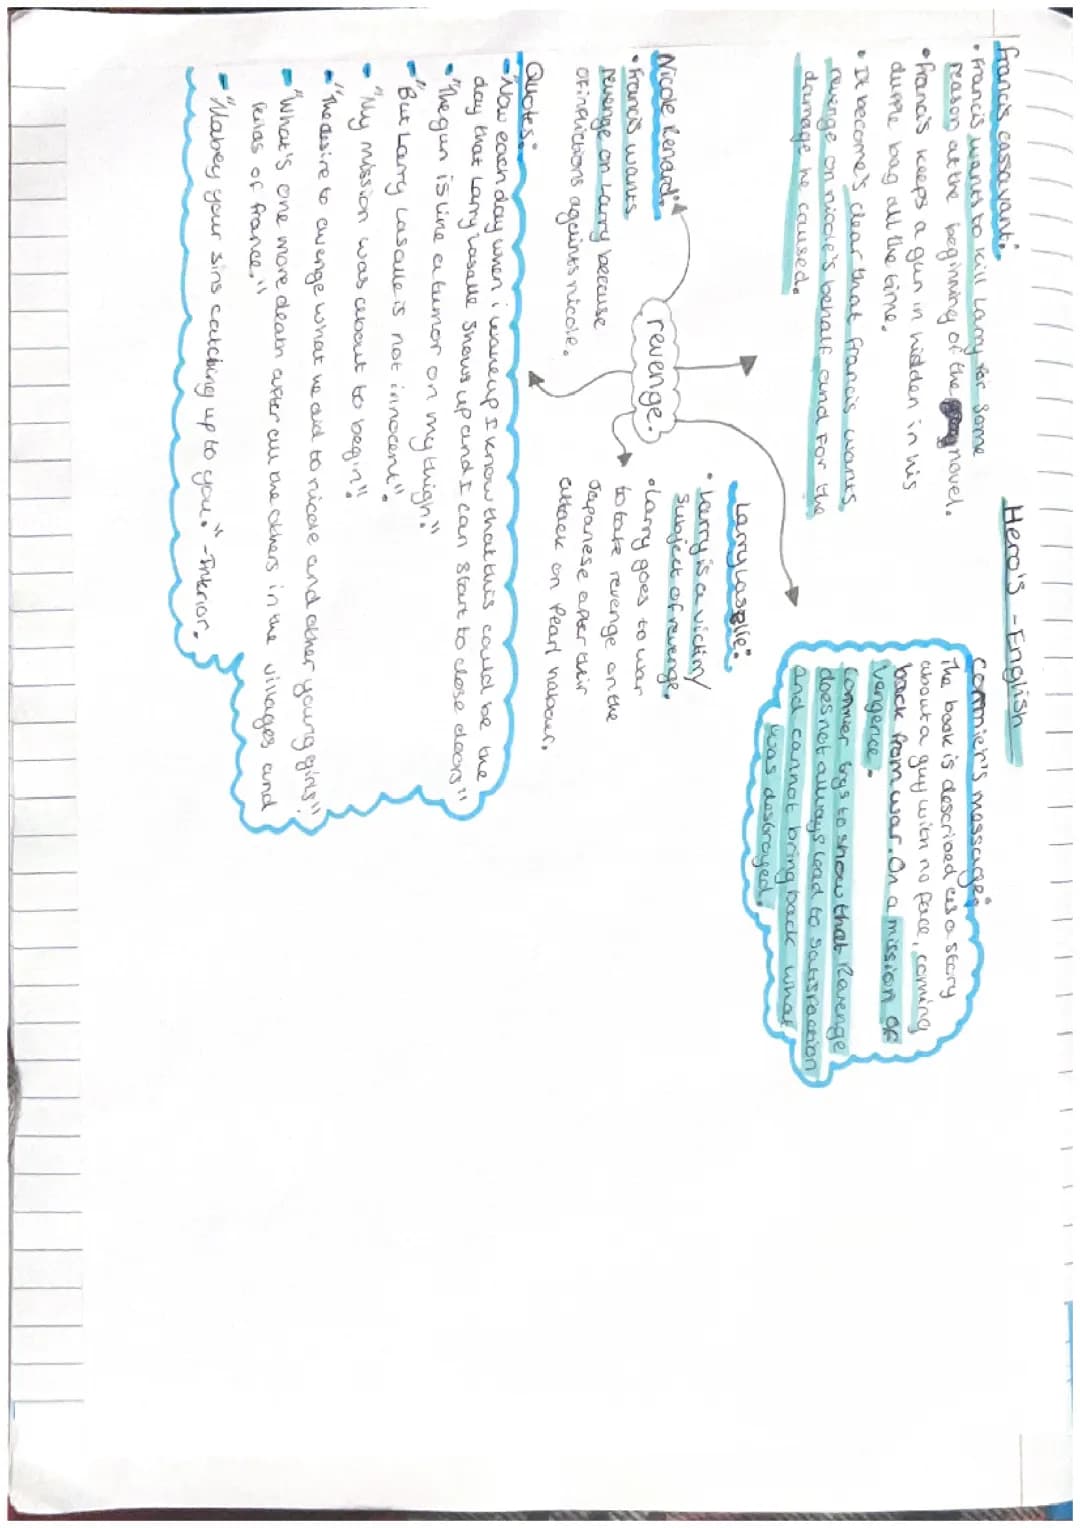 Hero's - English
Francis Cassavant:
• Francis wants to kill Larry for some
reason at the beginning of the novel.
• Francis keeps a gun in hidden in his
duffle bag all the time.
• It become's clear that Francis wants
revenge on nicole's behalf and for the
damage he caused.
Cormier's message:
The book is described as a story
about a guy with no face, coming
back from war. On a mission of
vengence.
Cormier trys to show that Revenge
does not always lead to satisfaction
and cannot bring back what
was destroyed.
revenge.
Nicole Renard:
• Francis wants
revenge on Larry because
of inflictions againts nicole.
Larry Lasalle:
• Larry is a victim/
subject of revenge.
• Larry goes to war
to take revenge on the
Japanese after their
attack on Pearl Habour.
Quotes:
- "Now each day when i wake up I know that this could be the
day that Larry Lasalle shows up and I can start to close doors"
• "The gun is like a tumor on my thigh."
- "But Larry Lasalle is not innocent".
• "My mission was about to begin".
• "The desire to avenge what he did to nicole and other young girls"
- "What's one more death after all the others in the villages and
feilds of france."
- "Mabey your sins catching up to you." - Interior.